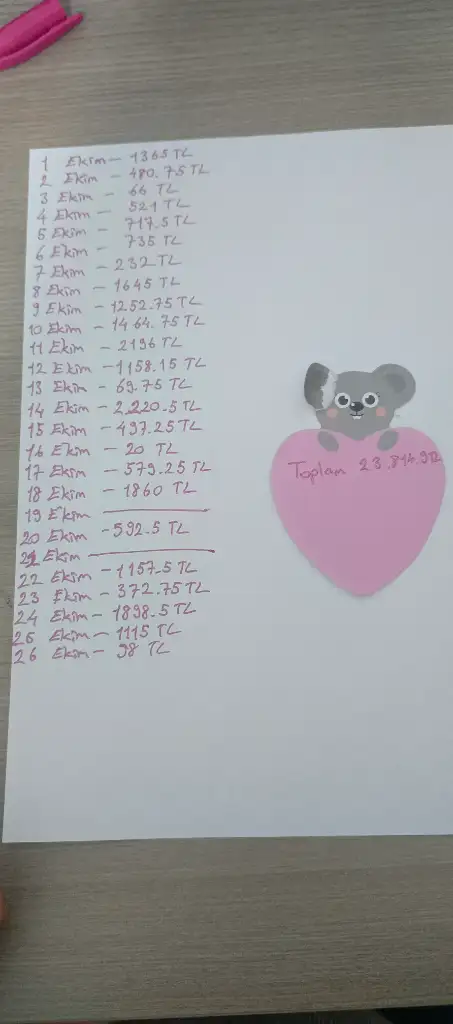 1 Ekim - 1365 TL
2 Ekim - 480.75 TL
3 Ekim - 66 TL
4 Ekim - 521 TL
5 Ekim - 717.5 TL
6 Ekim - 735 TL
7 Ekim - 232 TL
8 Ekim - 1645 TL
9 Ekim - 1252.75 TL
10 Ekim - 1464.75 TL
11 Ekim - 2196 TL
12 Ekim - 1158.15 TL
13 Ekim - 69.75 TL
14 Ekim - 2.220.5 TL
15 Ekim - 497.25 TL
16 Ekim - 20 TL
17 Ekim - 579.25 TL
18 Ekim - 1860 TL
19 Ekim
20 Ekim - 592.5 TL
21 Ekim
22 Ekim - 1157.5 TL
23 Ekim - 372.75 TL
24 Ekim - 1898.5 TL
25 Ekim - 1115 TL
26 Ekim - 98 TL
Toplam